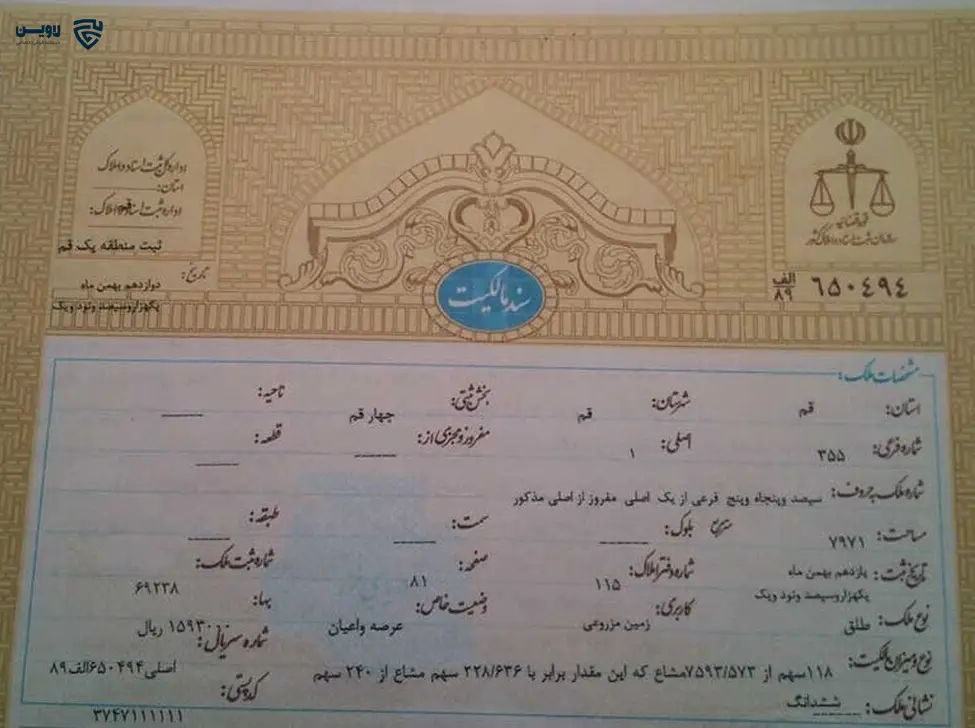 لاوین
اداره کل ثبت اسناد و املاک
استان:
اداره ثبت اسناد و املاک: قم
ثبت منطقه یک قم
تاریخ:
دوازدهم بهمن ماه
یکهزاروسیصد ونود ویک
قوه قضائیه
سازمان ثبت اسناد و املاک کشور
الف
۸۹ ۶۵۰۴۹۴
سند مالکیت
مشخصات ملک:
استان: قم شهرستان: قم بخش ثبتی: چهار قم ناحیه:
شماره فرعی: ۳۵۵ اصلی: ۱ مفروز و مجزی از: قطعه:
شماره ملک بحروف: سیصد وپنجاه وپنج فرعی از یک اصلی مفروز از اصلی مذکور
مساحت: ۷۹۷۱ مترمربع بلوک: سمت: طبقه:
تاریخ ثبت: یازدهم بهمن ماه یکهزاروسیصد ونود ویک شماره دفتر املاک: ۱۱۵ صفحه: ۸۱ شماره ثبت ملک: ۶۹۲۳۸
نوع ملک: طلق کاربری: زمین مزروعی وضعیت خاص: عرصه واعیان بها: ریال
نوع و میزان مالکیت: ۱۱۸سهم از ۷۵۹۳/۵۷۳مشاع که این مقدار برابر با ۲۲۸/۶۳۶ سهم مشاع از ۲۴۰ سهم شماره سریال: اصلی۶۵۰۴۹۴الف۸۹
نشانی ملک: ششدانگ کد پستی: ۳۷۴۷۱۱۱۱۱۱